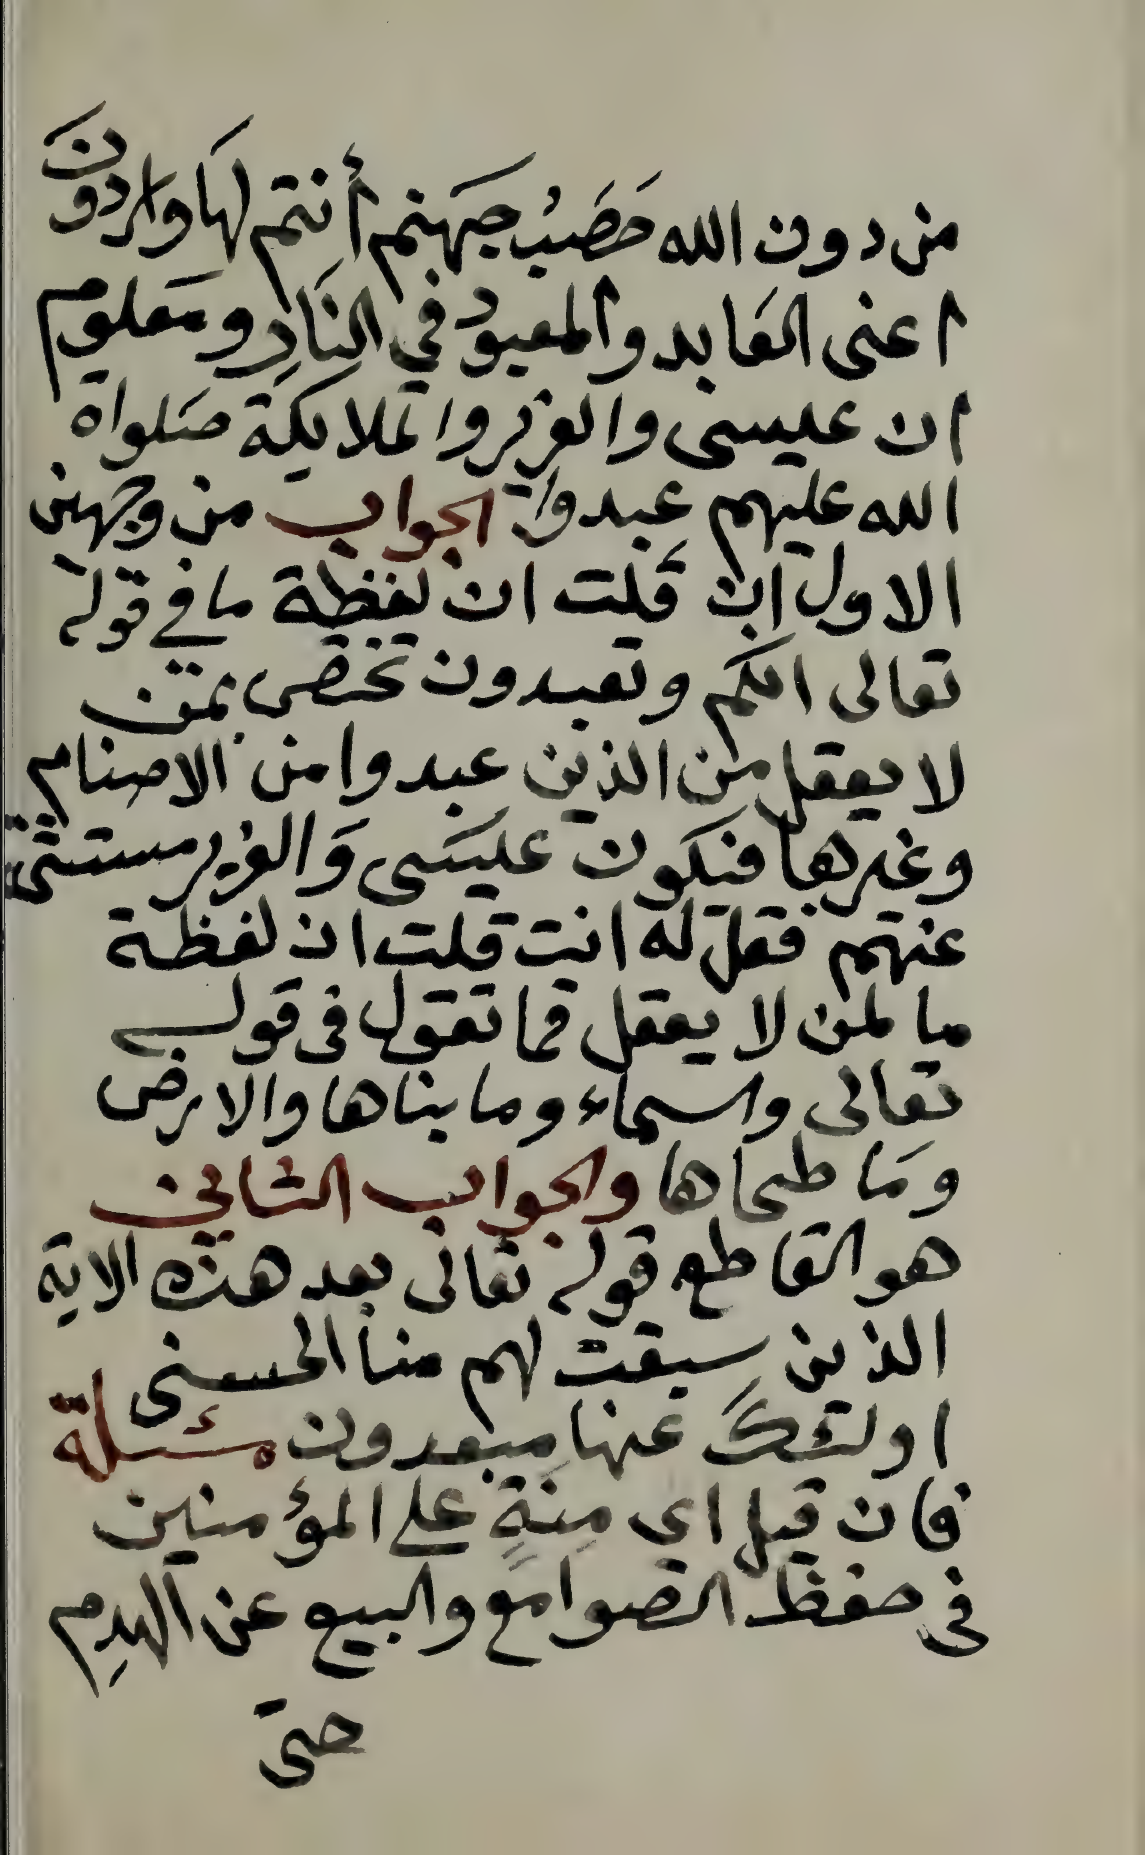 من دون الله حَصَبُ جَهَنم أنتم لهَا واردونَ
اعنى العَابد والمعبود في النَارِ ومَعلوم
ان عيسى والعزير والملايكة صَلواة
الله عليهم عبدوا الجواب من وجهين
الاول ان قَلت ان لفظة ما في قوله
تعالى انكم وتعبدون تختص بمَن
لا يعقل من الذين عبدوا من الاصنام
وغيرها فيكون عيسَى وَالعزير مستثنى
عنهم فقل له انت قلت ان لفظة
ما لمن لا يعقل فما تقول فى قوله
تعالى والسماء وما بناها والارض
ومَا طحاها والجواب الثاني
هو القاطع قوله تعالى بعد هذه الاية
الذين سبقت لهم منا الحسنى
اولئكَ عنها مبعدون مسئلة
فان قيل اي مِنَةٍ على المؤمنين
فى حفظ الصوامع والبيع عن الهدمِ
حتى